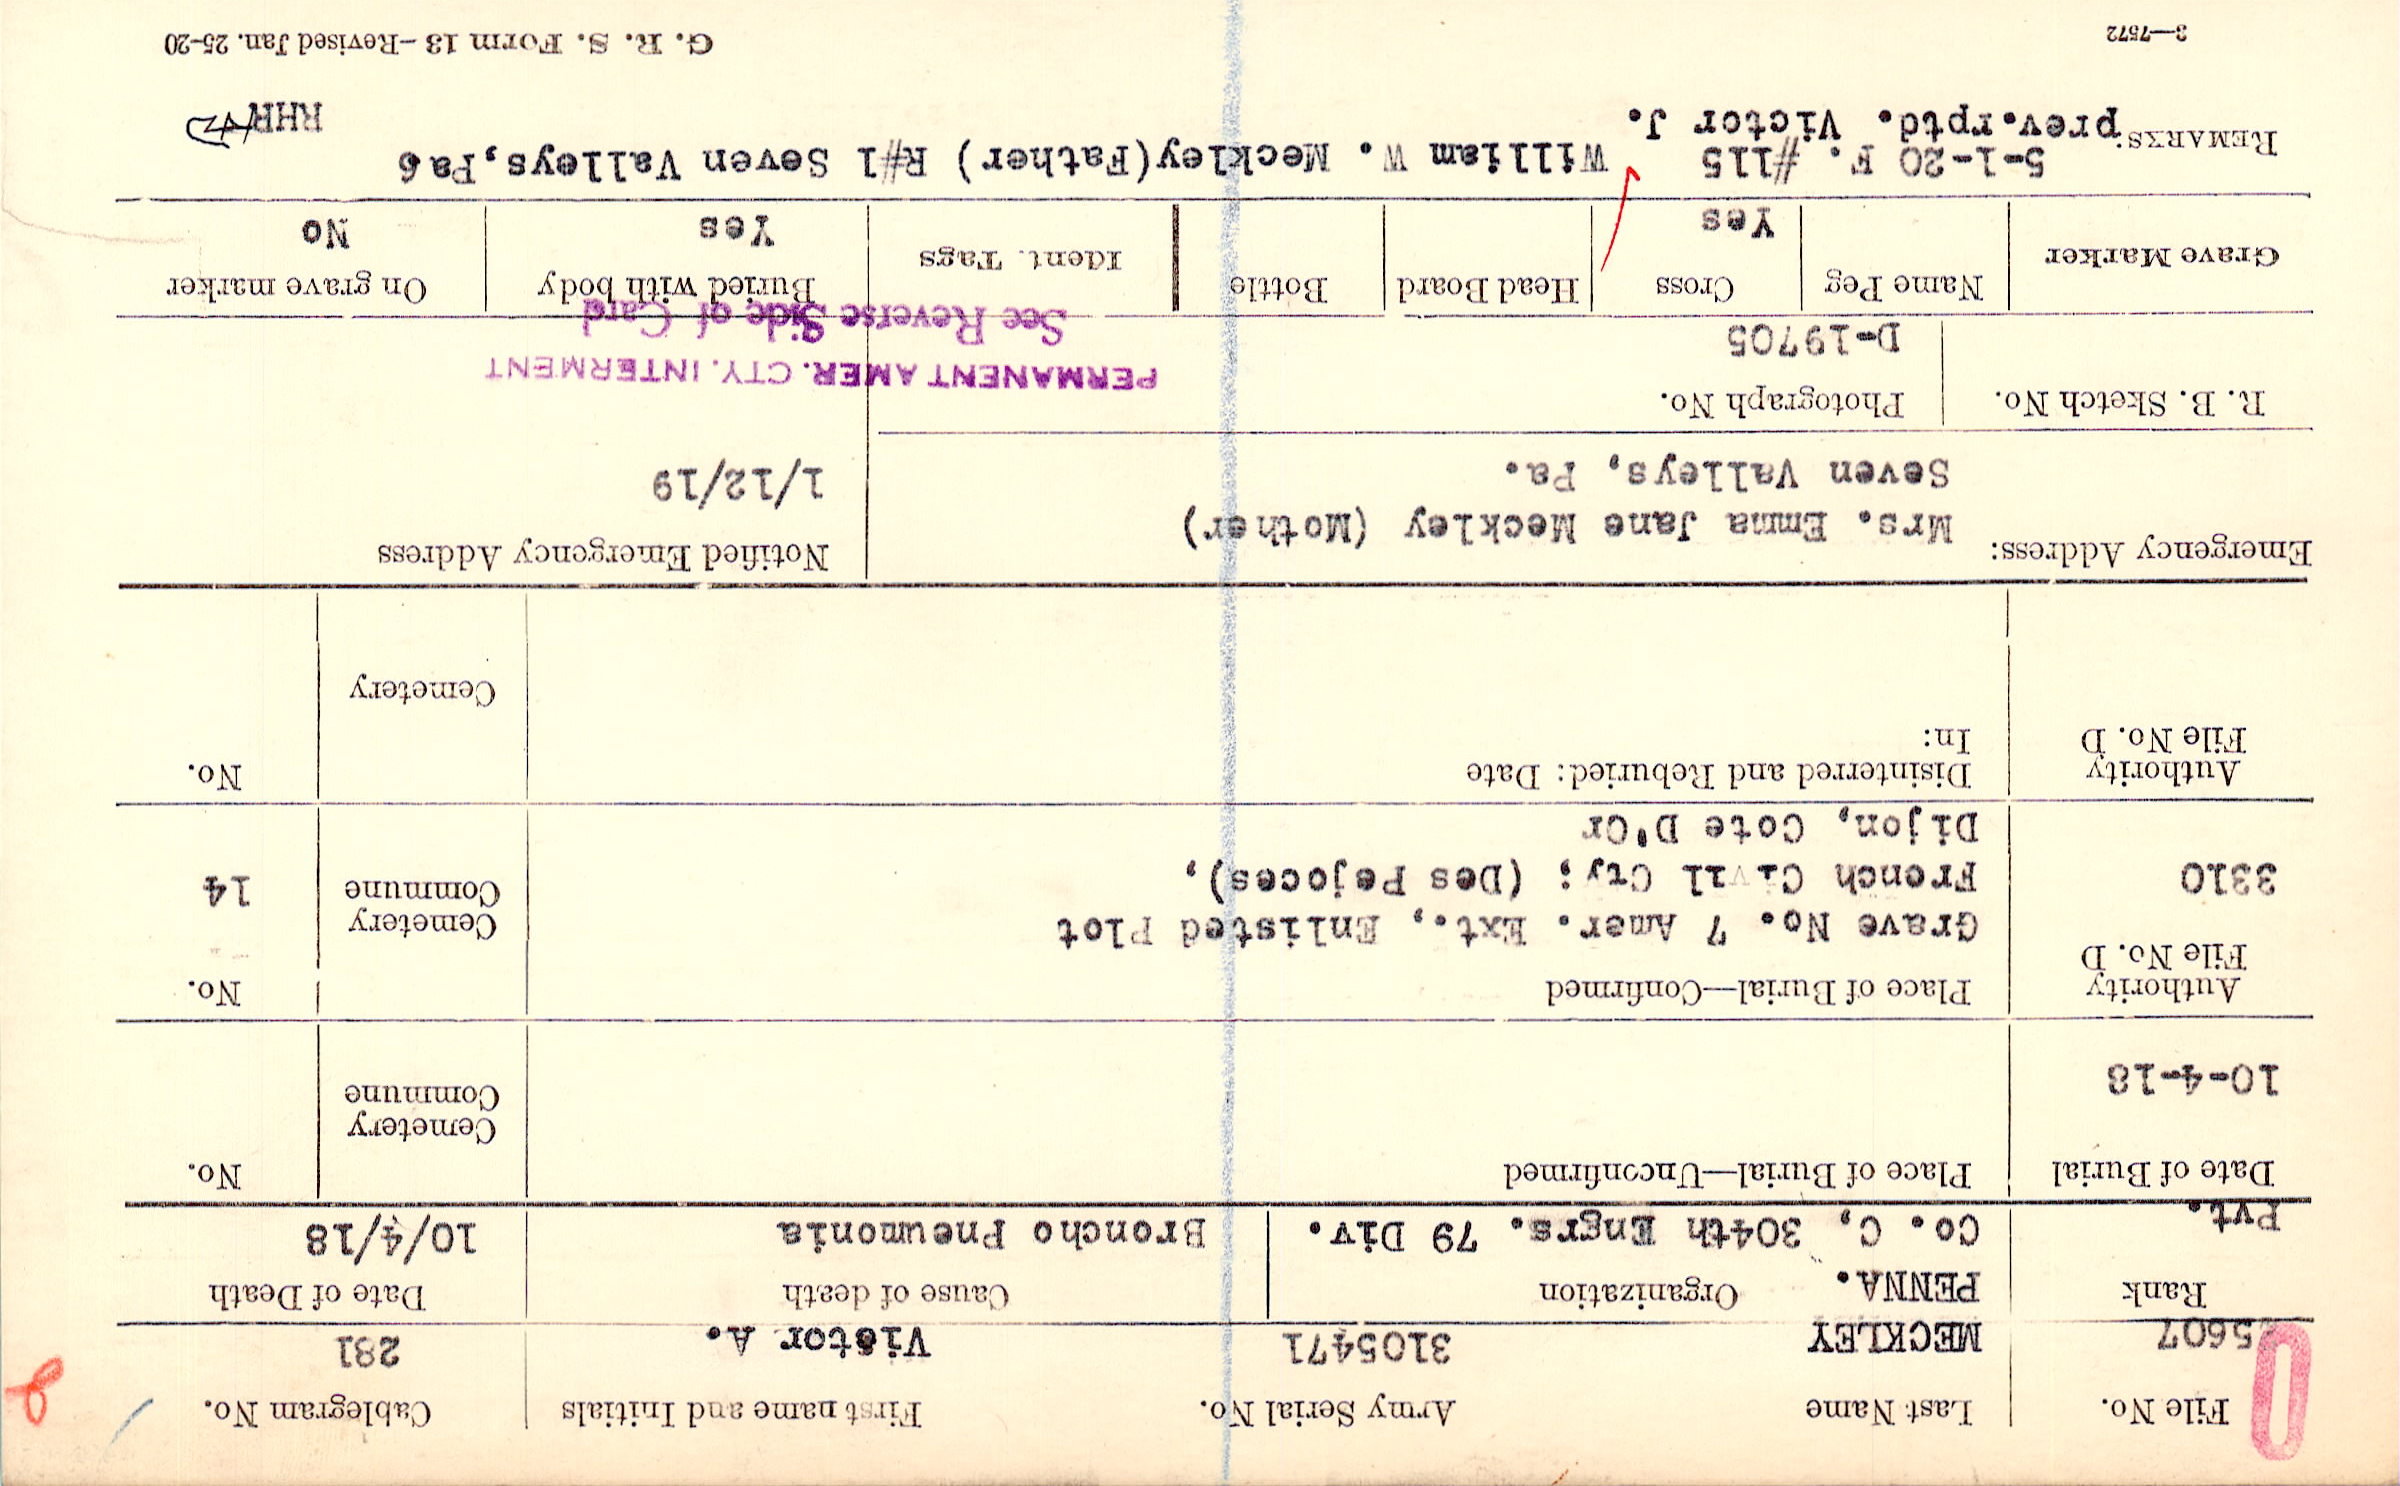 File No. Last Name Army Serial No. First name and Initials Cablegram No.
25607 MECKLEY 3105471 Victor A. 281
Rank PENNA. Organization Cause of death Date of Death
Pvt. Co. C, 304th Engrs. 79 Div. Broncho Pneumonia 10/4/18
Date of Burial Place of Burial—Unconfirmed No.
Cemetery
Commune
10-4-18
Authority Place of Burial—Confirmed No.
File No. D
Grave No. 7 Amer. Ext., Enlisted Plot Cemetery
3310 French Civil Cty; (Des Pejoces), Commune 14
Dijon, Cote D'Or
Authority Disinterred and Reburied: Date No.
File No. D In:
Cemetery
Emergency Address: Notified Emergency Address
Mrs. Emma Jane Meckley (Mother)
Seven Valleys, Pa. 1/12/19
R. B. Sketch No. Photograph No.
D-19705
PERMANENT AMER. CTY. INTERMENT
See Reverse Side of Card
Grave Marker Name Peg Cross Head Board Bottle Ident. Tags Buried with body On grave marker
Yes Yes No
5-1-20 F. #115 William W. Meckley(Father) R#1 Seven Valleys,Pa6
REMARKS: prev.rptd. Victor J. RHR
3—7572 G. R. S. Form 13—Revised Jan. 25-20